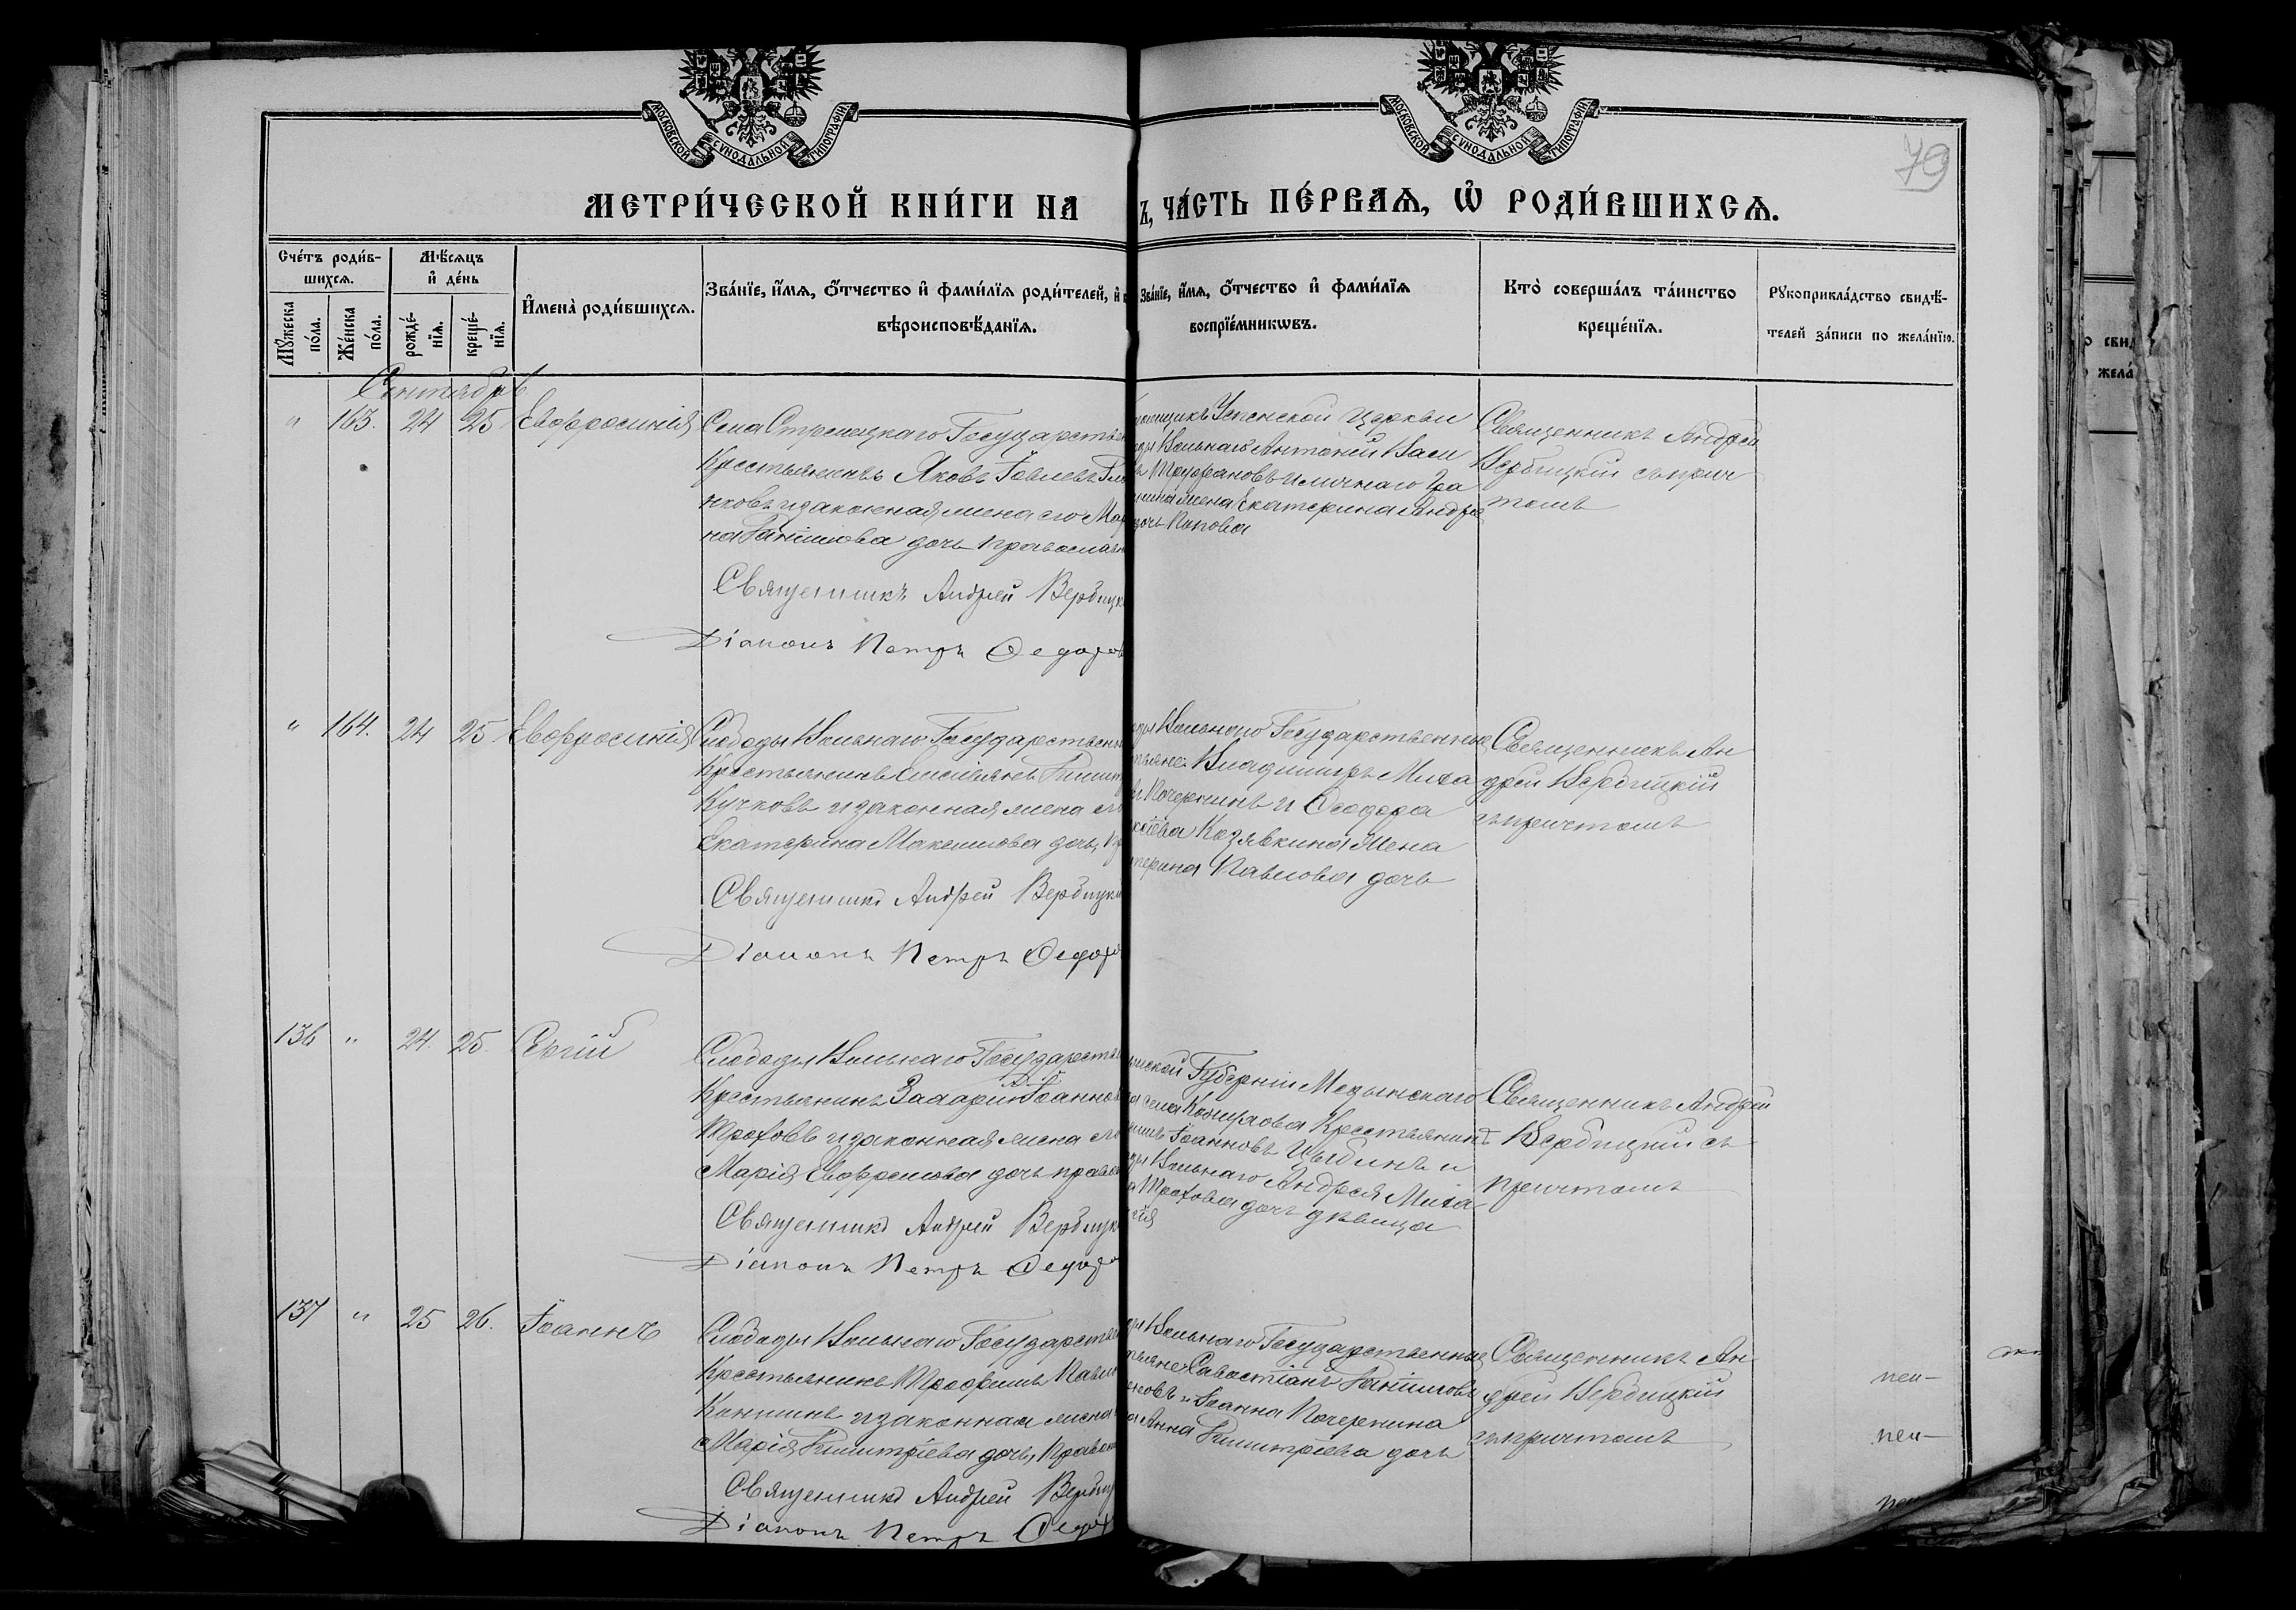 МОСКОВСКОЙ СѴНОДАЛЬНОЙ ТИПОГРАФІИ
МОСКОВСКОЙ СѴНОДАЛЬНОЙ ТИПОГРАФІИ
79
МЕТРИ́ЧЕСКОЙ КНИ́ГИ НА
Ъ, ЧА́СТЬ ПЕ́РВАѦ, Ѡ҆ РОДИ́ВШИХСѦ.
Сче́тъ роди́в-
шихсѧ.
Мꙋ́жеска
по́ла.
Же́нска
по́ла.
Мѣ́сѧцъ
и҆ де́нь
рожде́-
нїѧ.
креще́-
нїѧ.
И҆мена̀ роди́вшихсѧ.
Зва́нїе, и҆́мѧ, ѻ҆́тчество и҆ фами́лїѧ роди́телей, и҆
вѣроисповѣ́данїѧ.
Зва́нїе, и҆́мѧ, ѻ҆́тчество и҆ фами́лїѧ
воспрїе́мникѡвъ.
Кто̀ соверша́лъ та́инство
креще́нїѧ.
Рꙋкоприкла́дство свидѣ́-
телей за́писи по жела́нїю.
Сентябрь
" 163. 24 25 Евфросинія
Села Стрелецкаго Государствен
Крестьянинъ Яковъ
нковъ и законная жена его Мар
на Даніилова дочь православн
Священникъ Андрей Вербицк
Діаконъ Петръ Федоров
Успенской Церкви
Вольнаго Антоній Васи
Трофановъ и личнаго Гра
жена Екатерина Андре
дочь Попова
Священникъ Андрей
Вербицкій съ прич
томъ
" 164. 24 25. Евфросинія
Слободы Вольнаго Государственн
Крестьянинъ Димит
Кучковъ и законная жена
Екатерина Максимова дочь, Пр
Священникъ Андрей Вербицки
Діаконъ Петръ Федор
Вольнаго Государственные
Владимиръ Миха
Почернинъ и Феодора
Козявкина Жена
терина Павлова дочь
Священникъ Ан
дрей Вербицкій
съ причтомъ
136 " 24. 25. Сергій
Слободы Вольнаго Государстве
Крестьянинъ Захарій Іоаннов
Троховъ и законная жена
Марія Евфремова дочь правос
Священникъ Андрей Вербицк
Діаконъ Петръ Федор
Губерніи Медынскаго
села Крестьянинъ
Іоанновъ Цыбинъ и
Вольнаго Андрея Миха
Трохова дочь дѣвица
Священникъ Андрей
Вербицкій съ
причтомъ
137 " 25 26. Іоаннъ
Слободы Вольнаго Государстве
Крестьянинъ Трофимъ Павло
Конинъ и законная жена
Марія Димитріева дочь, Правос
Священникъ Андрей Вербиц
Діаконъ Петръ Федор
Вольнаго Государственные
Савастіанъ Даніиловъ
и Іоанна Почернина
Анна Димитріева дочь
Священникъ Ан
дрей Вербицкій
съ причтомъ